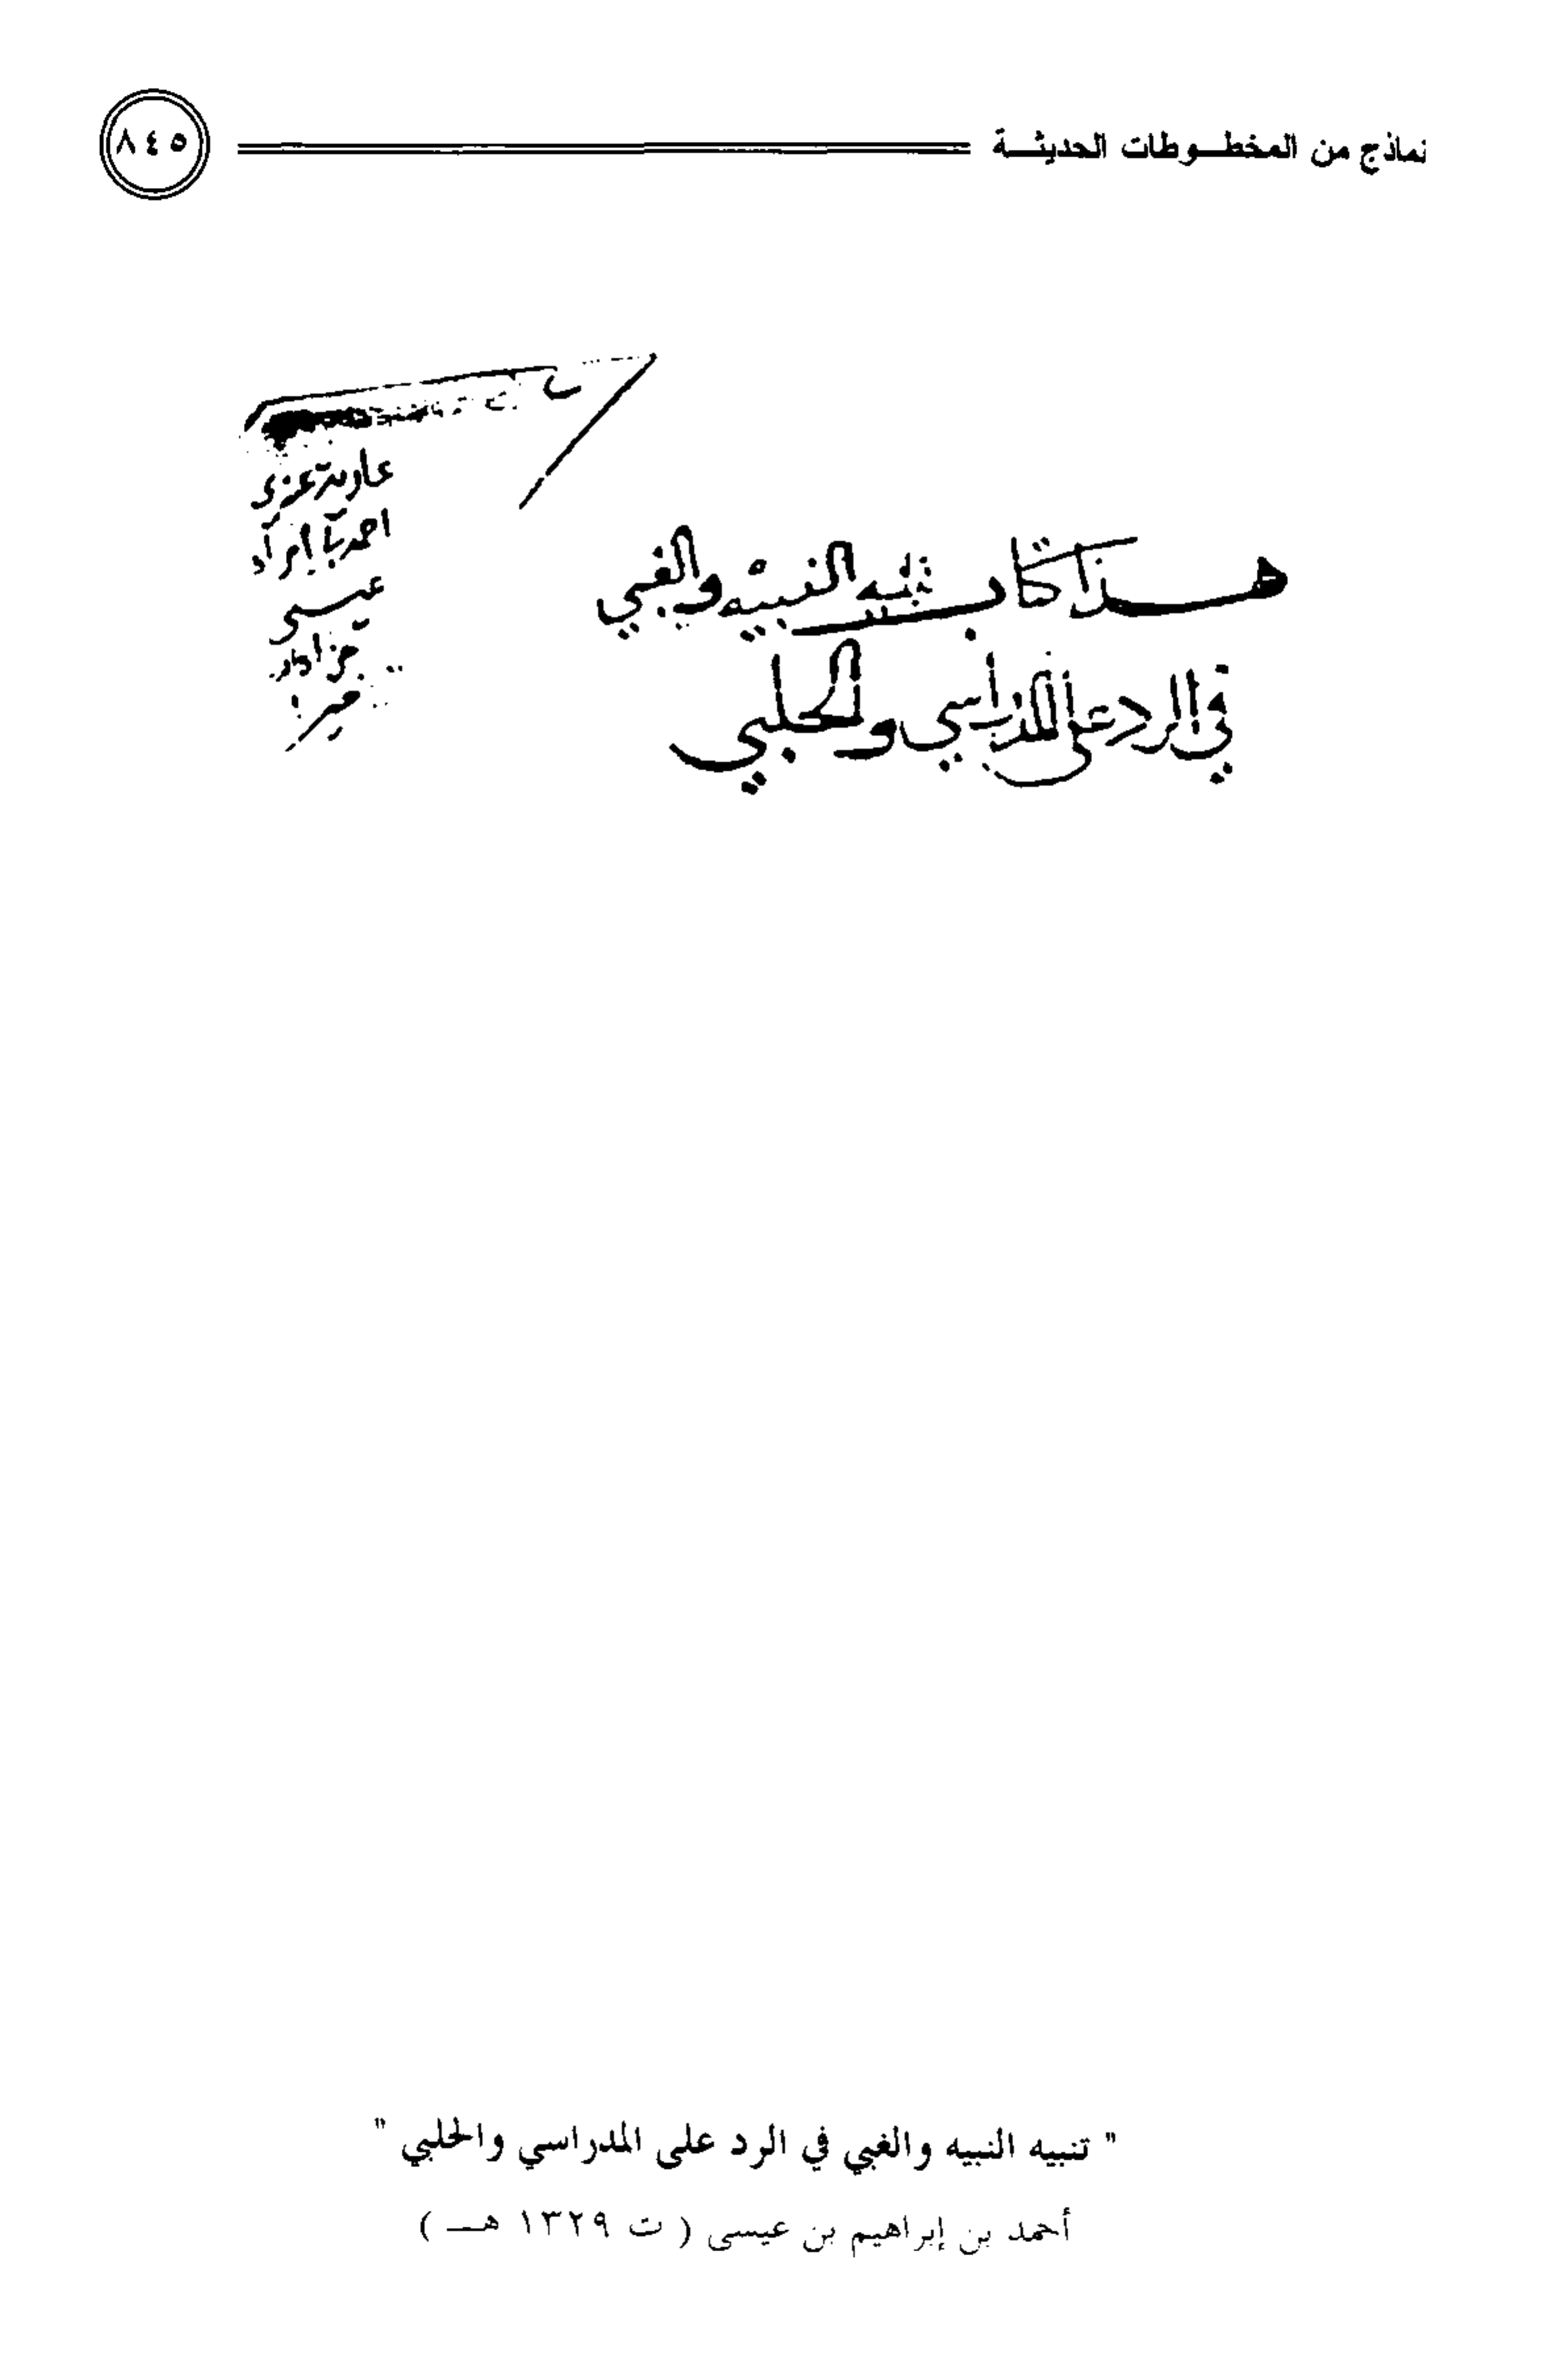 نماذج من المخطوطات الحديثة
٨٤٥
هذا كتاب تنبيه النبيه والغبي
في الرد على المدراسي والحلبي
عيسى
" تنبيه النبيه والغبي في الرد على المدراسي والحلبي "
أحمد بن إبراهيم بن عيسى ( ت ١٣٢٩ هـ )